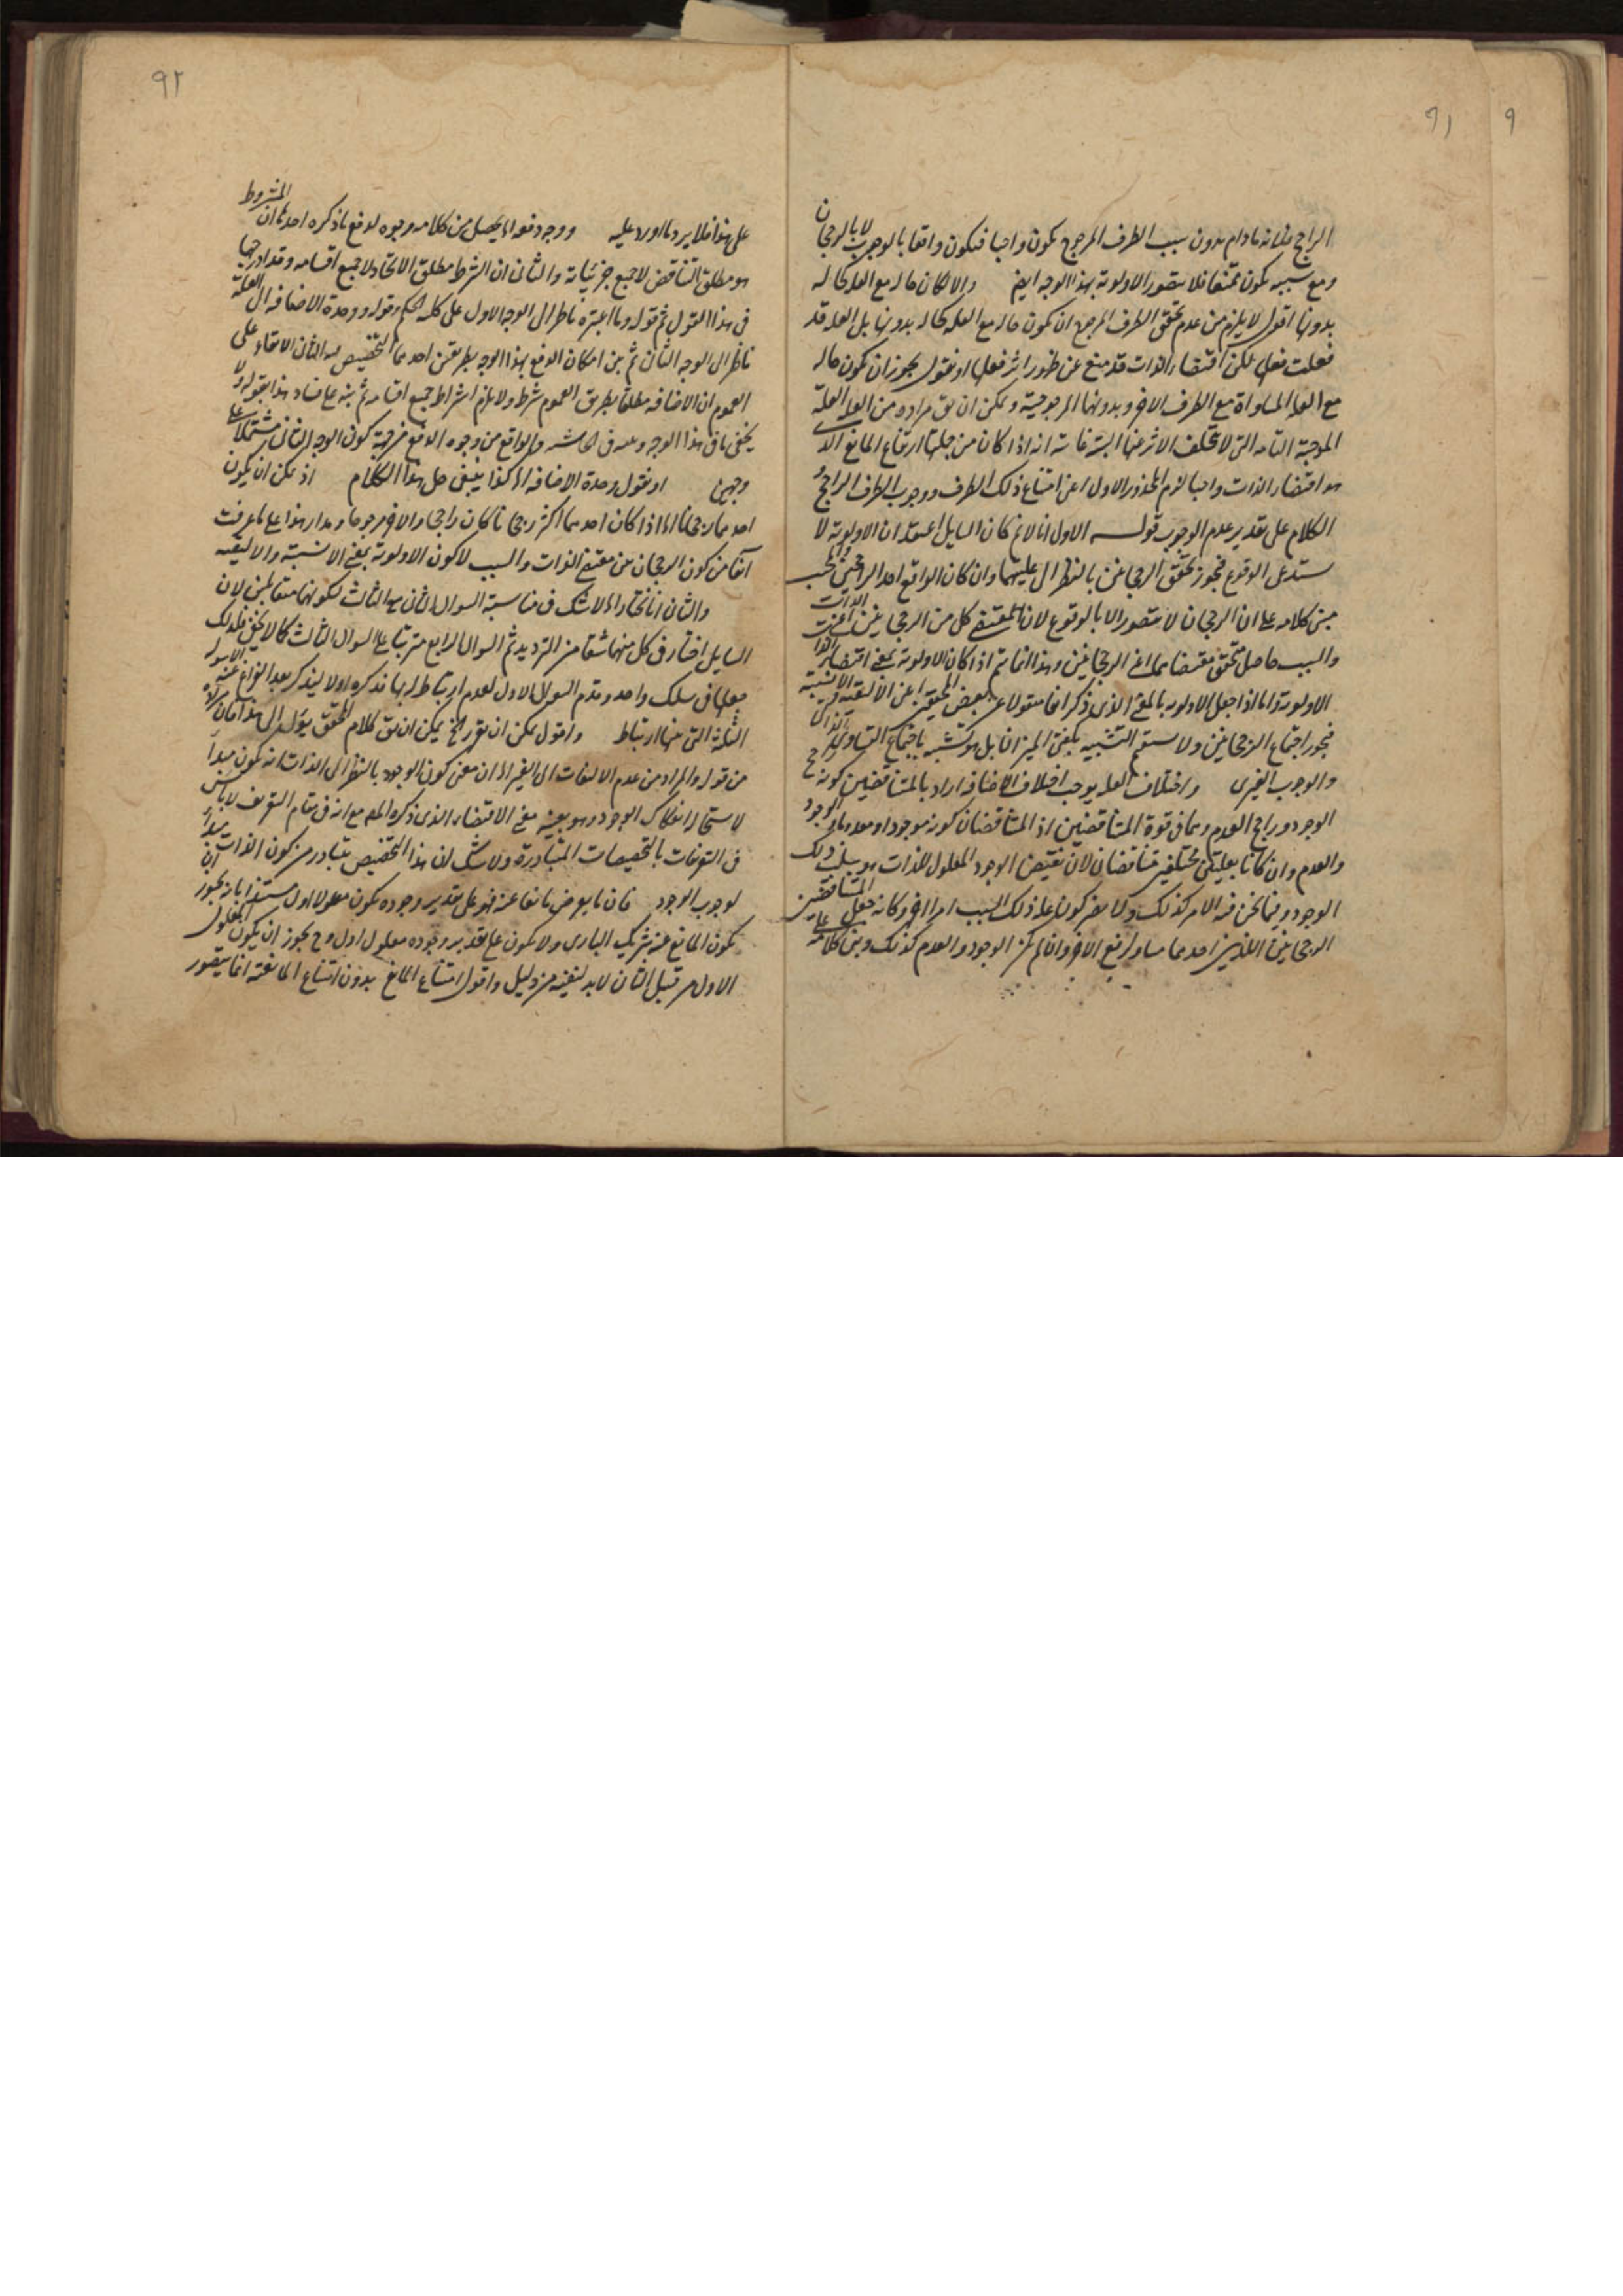 ٩١
٩
الراجح فلانه ما دام بدون سبب الطرف المرجوح يكون واجبا فيكون واقعا بالوجوب لا بالرجحان
ومع سببه يكون ممتنعا فلا يتصور الاولوية بهذا الوجه ايضا والا لكان حاله مع العلة كحاله
بدونها اقول لا يلزم من عدم تحقق الطرف المرجوح ان يكون حاله مع العلة كحاله بدونها بل العلة قد
فعلت فعلها لكن اقتضاء الذات قد منع عن ظهور اثر فعلها او نقول يجوز ان يكون حاله
مع العلة المساواة مع الطرف الاخر وبدونها المرجوحية ويمكن ان يق مراده من العلة العلة
الموجبة التامة التي لا يتخلف الاثر عنها البتة غايته انه اذا كان من جملتها ارتفاع المانع الذي
هو اقتضاء الذات واجبا لزم المحذور الاول اعنى امتناع ذلك الطرف ووجوب الطرف الراجح و
الكلام على تقدير عدم الوجوب قوله الاول انا لانم كان السايل اعتقد ان الاولوية لا
ستدعى الوقوع فيجوز تحقق الرجحانين بالنظر الى عليتهما وان كان الواقع احد الراجحين
مبنى كلامه على ان الرجحان لا يتصور الا بالوقوع لان المقتضى كل من الرجحانين الذات
والسبب حاصل تحقق مقتضاهما اعنى الرجحانين وهذا انما يتم اذا كان الاولوية بمعنى اقتضاء الذات
الاولوية واما اذا جعل الاولوية بالمعنى الذى ذكر انفا منقولا عن بعض المحققين اعنى الاليقية والانسبية
فيجوز اجتماع الرجحانين ولا يستقيم التشبيه بكفتى الميزان بل هو كتشبيه باجتماع التساوى الذاتى
والوجوب الغيرى واختلاف العلة يوجب اختلاف الاضافة اراد بالمتناقضين كونه راجح
الوجود وراجح العدم وهما فى قوة المتناقضين اذ المتناقضان كونه موجودا ومعدوما والوجود
والعدم وان كانا بعليتين مختلفتين متناقضان لان نقيض الوجود المعلول للذات هو سلب ذلك
الوجود وفيما نحن فيه الامر كذلك ولا يضر كون علة ذلك السبب امرا اخر وكانه جعل المتناقضين
الرجحانين اللذين احدهما مساو لرفع الاخر وان لم يكن الوجود والعدم كذلك وبنى كلامه على
٩٢
على هذا فلا يرد ما اورد عليه ووجه دفعه اه يحصل من كلامه وجوه لدفع ما ذكره احدها ان المشروط
هو مطلق التناقض لا جميع جزئياته والثانى ان الشرط مطلق الاتحاد لا جميع اقسامه وقد ادرجها
فى هذا القول ثم قوله وما اعتبره ناظر الى الوجه الاول على كلمة لكم وقوله ووحدة الاضافة الى العلة
ناظر الى الوجه الثانى ثم بين امكان الدفع بهذا الوجه بطريقين احدهما التخصيص والثانى الابقاء على
العموم ان الاضافة مطلقا بطريق العموم شرط ولا يلزم اشراط جميع اقسامه ثم نبه على فساد هذا بقوله ولا
يخفى ما فى هذا الوجه وعبر فى الحاشيه والواقع من وجوه الدفع خرجية كون الوجه الثانى مشتملا على
وجهين او نقول وحدة الاضافة اه كذا ينبغى حل هذا الكلام اذ يمكن ان يكون
احدهما رجحانا اه اذا كان احدهما اكثر رجحانا كان راجحا والاخر مرجوحا ومدار هذا على ما عرفت
آنفا من كون الرجحان من مقتضى الذات والسبب لا كون الاولوية بمعنى الانسبية والاليقية
والثانى انا نختار اه لا شك فى مناسبة السوال الثانى مع الثالث لكونهما متقابلين لان
السايل اختار فى كل منهما شقا من الترديد ثم السوال الرابع مترتبا على السوال الثالث كما لا يخفى فلذلك
جعلها فى سلك واحد وقدم السوال الاول لعدم ارتباطه لها فذكره اولا ليذكر بعد الفراغ عنه الاسوله
الثلثة التى بينها ارتباط واقول يمكن ان يق كلام المحقق يؤل الى هذا
من قوله والمراد من عدم الالتفات الى الغير اه ان معنى كون الوجود بالنظر الى الذات انه يكون مبدأ
لاستحالة انفكاك الوجود وهو بعينه معنى الاقتضاء الذى ذكره المعلم مع انه فى مقام التعريف لا بأس
فى التعريفات بالتخصيصات المتبادرة ولا شك ان هذا التخصيص يتبادر من كون الذات مبدأ
لوجوب الوجود فان ما يعرض مانعا عنه فهو على تقدير وجوده يكون معلولا اول مستندا بانه يجوز ان
يكون المانع عنه شريك البارى ولا يكون على تقدير وجوده معلول اول وح يجوز ان يكون المعلول
الاول من قبيل الثانى لابد لنفيه من دليل واقول امتناع المانع بدون امتناع المانعية انما يتصور